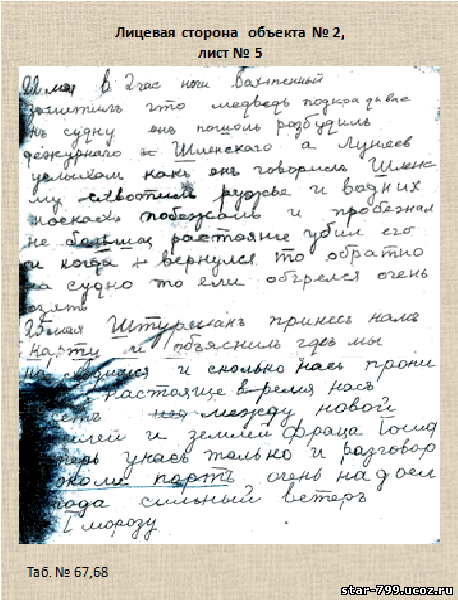 Лицевая сторона объекта № 2,
лист № 5
мая в 2 час ночи Вахтенный
что медведь подкрадывае
къ судну онъ пошолъ розбудилъ
Шленскаго а Лунеев
какъ онъ говорилъ Шленс
му схватилъ ружье и водних
носкахъ побежалъ и пробежал
не большо растояние убил его
и когда вернулся то обратно
на судно то ели обгрелся очень
25 мая Штурманъ принесъ нам
карту и объяснилъ где мы
и сколько насъ прони
растояще время насъ
между новой
землей и землей Франца Иосиф
только и разговор
около карты очень надоел
года сильный ветеръ
морозу
Таб. № 67,68
star-799.ucoz.ru